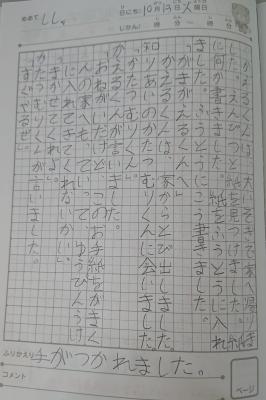 めあて しし。
日にち 10月13日火曜日
じかん: 時 分〜 時 分
かえるくんは、大いそぎで家へ帰りま
した。えんぴつと紙を見つけました。紙
に何か書きました。紙をふうとうに入れ
ました。ふうとうにこう書きました。
「がまがえるくんへ」
かえるくんは、家からとび出しました。
知りあいのかたつむりくんに会いました。
「かたつむりくん。」
かえるくんが言いました。
「おねがいだけど、このお手紙をがまく
んの家へもっていって、ゆうびんうけ
に入れてきてくれないかい。」
「まかせてくれよ。」
かたつむりくんが言いました。
「すぐやるぜ。」
ふりかえり 手がつかれました。
コメント
ページ